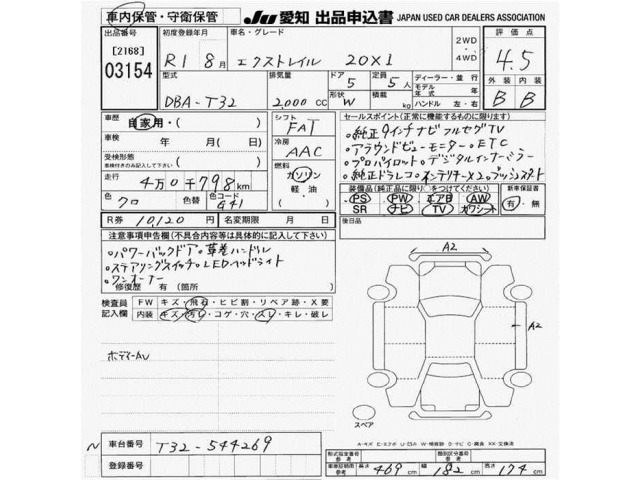 車内保管・守衛保管 JU 愛知 出品申込書 JAPAN USED CAR DEALERS ASSOCIATION
出品番号 [2168] 03154
初度登録年月 R1 8月
車名・グレード エクストレイル 20X1
2WD 4WD
評価点 4.5
型式 DBA-T32
排気量 2,000 CC
ドア 5
定員 5人
形状 W
積載 kg
ディーラー・並行
モデル年式 年
ハンドル 左・右
外装 B
内装 B
車歴 自家用・( )
車検 年 月( 日)
受検形態 車検付きのみ記入して下さい ( )
走行 4万0千798km
色 クロ 色替 色コード 441
シフト FAT
冷房 AAC
燃料 ガソリン 軽油 ( )
R券 10,120円 名変期限 月 日
セールスポイント(正常に機能するものに限ります)
・純正9インチナビフルセグTV
・アラウンドビューモニター・ETC
・プロパイロット・デジタルインナーミラー
・純正ドラレコ・インテリキーX2・プッシュスタート
装備品(純正品に限り○をつけてください)
PS PW エアB AW
SR ナビ TV カワシート
新車保証書 有・無
後日品
注意事項申告欄(不具合内容等は具体的に記入して下さい)
・パワーバックドア・革巻ハンドル
・ステアリングスイッチ・LEDヘッドライト
・ワンオーナー
修復歴 有(箇所 )
検査員記入欄
FW キズ・飛石・ヒビ割・リペア跡・X要
内装 キズ・汚レ・コゲ・穴・スレ・キレ・破レ
ボディーAU
A2
A2
スペア
N 車台番号 T32-544269
登録番号
形式指定番号 参考
類別区分番号 参考
車検証期間 参考 長さ 469cm 幅 182cm 高さ 174cm